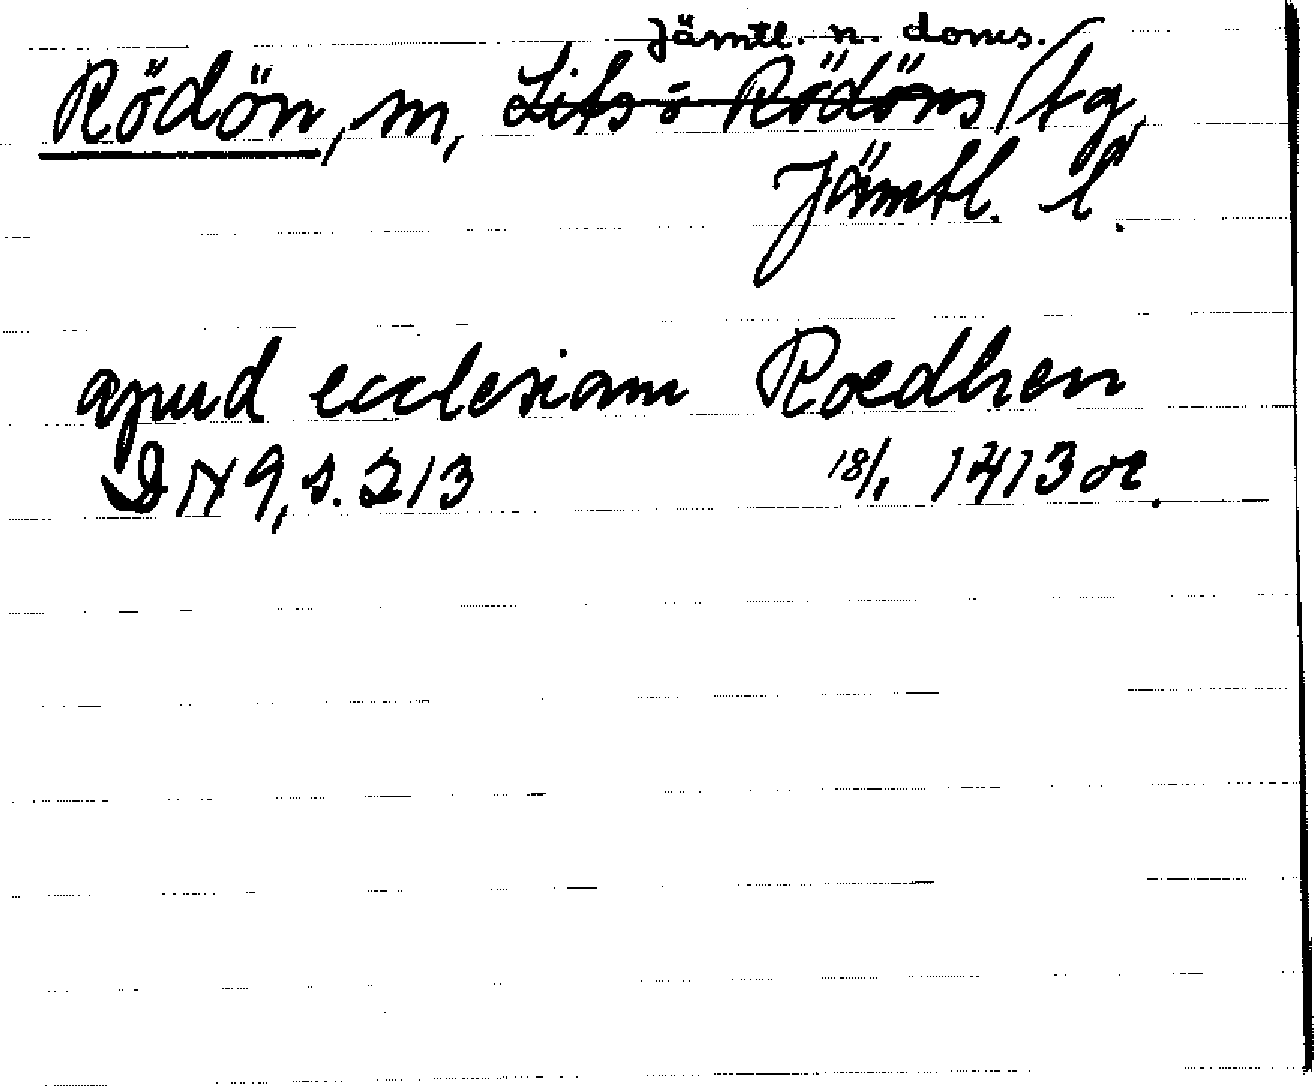 Jämtl. n. doms.
Rödön, sn, Lits o Rödöns tg,
Jämtl. l.
apud ecclesiam Roedhen
DN 9, s. 213 18/1 1413 or.